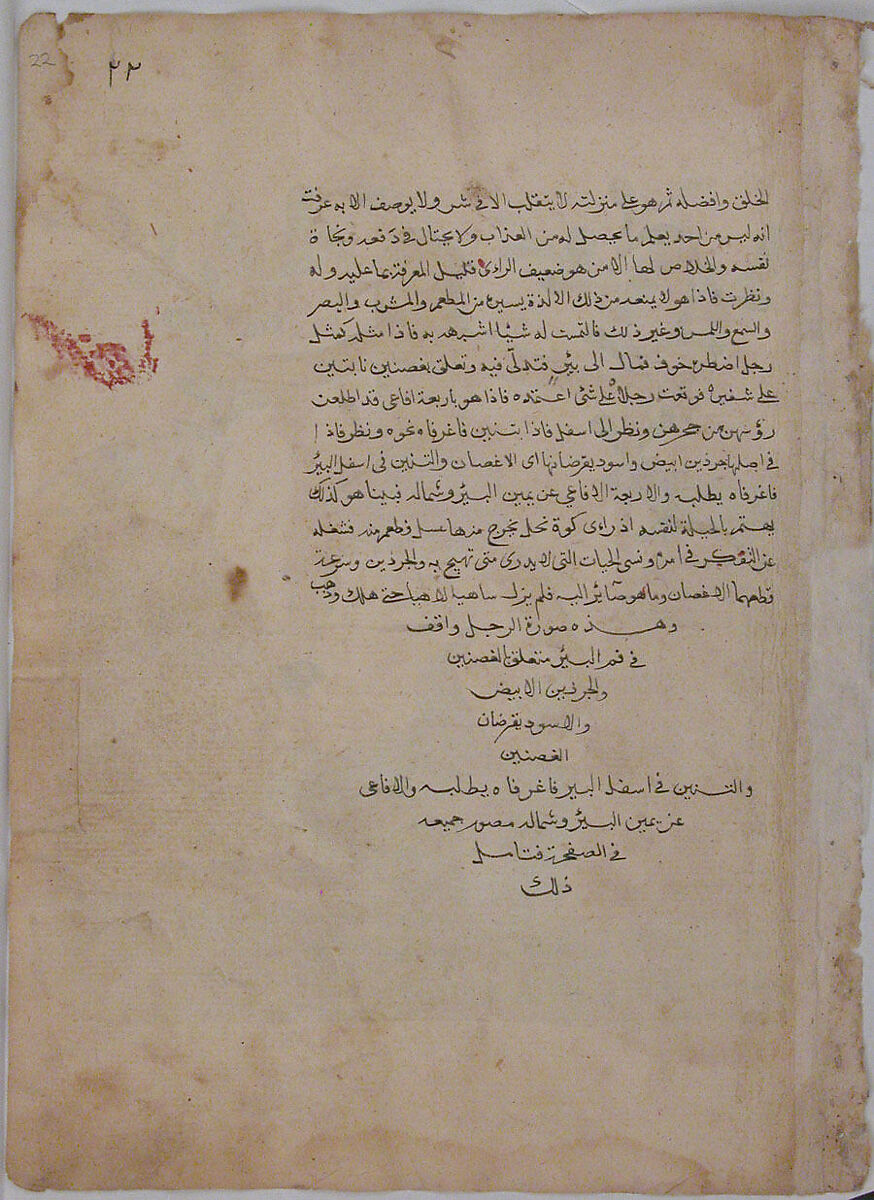 22
٢٢
الخلق وافضله ثم هو على منزلته لا يتقلب الا في شر ولا يوصف الا به عرفت
انه ليس من احد يعلم ما يحصل له من العذاب ولا يحتال في دفعه ونجاة
نفسه والخلاص لها الا من هو ضعيف الراءى قليل المعرفة بما عليه وله
ونظرت فاذا هو لا يمنعه من ذلك الا لذة يسيرة من المطعم والمشرب والبصر
والسمع واللمس وغير ذلك فالتمست له شيا اشبهه به فاذا مثله كمثل
رجل اضطره خوف فمال الى بئر فتدلّى فيه وتعلق بغصنين نابتين
على شفيره فوقعت رجلاه على شئ اعتمده فاذا هو باربعة افاعى قد اطلعن
رؤسهن من جحرهن ونظر الى اسفل فاذا بتنين فاغر فاه نحوه ونظر فاذا
في اصلها بجرذين ابيض واسود يقرضانها اى الاغصان والتنين فى اسفل البئر
فاغر فاه يطلبه والاربعة الافاعي عن يمين البئر وشماله فبينا هو كذلك
يهتم بالحيلة لنفسه اذ راءى كوة نحل يخرج منها عسل فطعم منه فشغله
عن التفكر في امره ونسى الحيات التى لا يدرى متى تهيج به والجرذين وسرعة
قطعهما الاغصان وما هو صائر اليه فلم يزل ساهيا لاهيا حتى هلك
وهذه صورة الرجل واقف
في فم البئر متعلق بالغصنين
والجرذين الابيض
والاسود يقرضان
الغصنين
والتنين في اسفل البير فاغر فاه يطلبه والافاعى
عن يمين البئر وشماله مصور جميعه
في الصفحة فتامل
ذلك